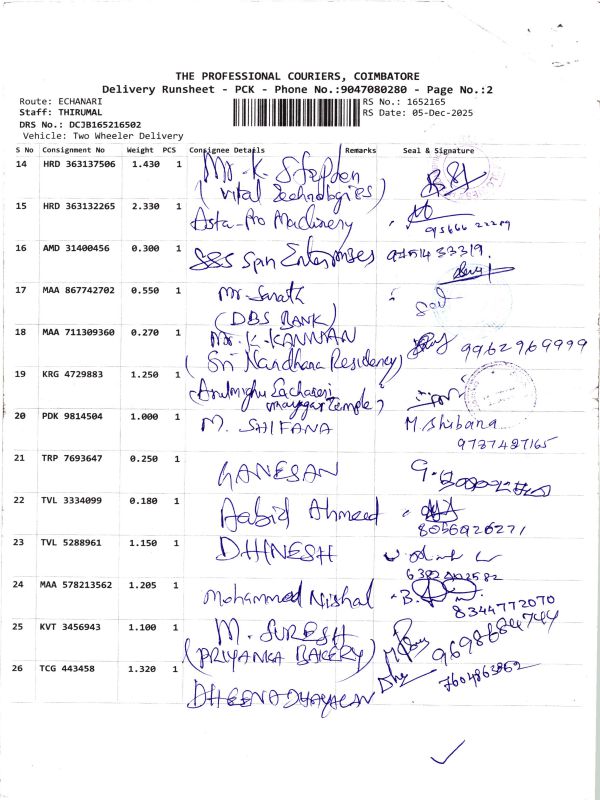 THE PROFESSIONAL COURIERS, COIMBATORE
Delivery Runsheet - PCK - Phone No.:9047080280 - Page No.:2
Route: ECHANARI RS No.: 1652165
Staff: THIRUMAL RS Date: 05-Dec-2025
DRS No.: DCJB165216502
Vehicle: Two Wheeler Delivery
S No Consignment No Weight PCS Consignee Details Remarks Seal & Signature
14 HRD 363137506 1.430 1 Mr. K. Stephen
(Vital Technologies)
15 HRD 363132265 2.330 1 Asta-Pro Machinery
16 AMD 31400456 0.300 1 S&S Spin Enterprises
17 MAA 867742702 0.550 1 Mr. Sarath
(DBS BANK)
18 MAA 711309360 0.270 1 Mr. K. KANNAN
(Sri Nandhana Residency) 9962969999
19 KRG 4729883 1.250 1 Arulmighu
Temple)
20 PDK 9814504 1.000 1 M. SHIFANA M. Shibana
9787487165
21 TRP 7693647 0.250 1 GANESAN
22 TVL 3334099 0.180 1 Aabid Ahmeed
8056926271
23 TVL 5288961 1.150 1 DHINESH
24 MAA 578213562 1.205 1 Mohammed Nishal
8344772070
25 KVT 3456943 1.100 1 M. SURESH
(PRIYANKA BAKERY) 9698684744
26 TCG 443458 1.320 1 DHEENADHAYALAN 7604863862